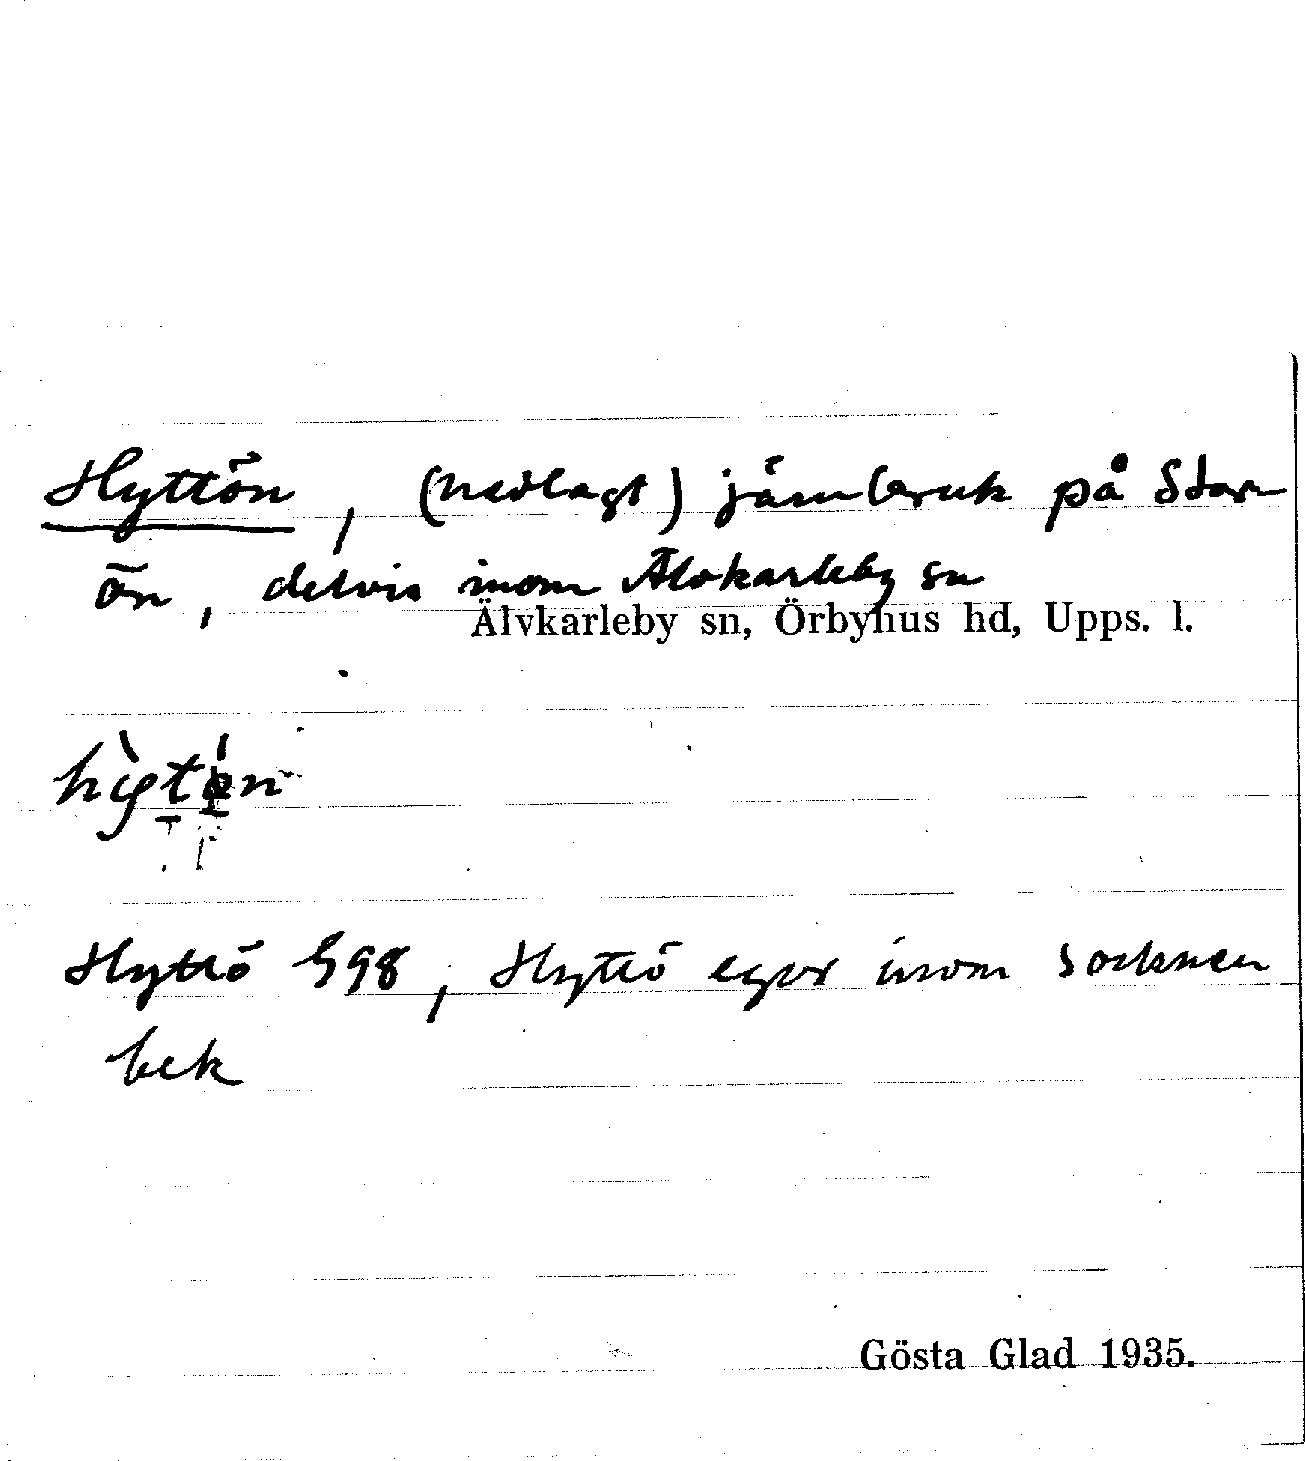 Hyttön, (nedlagt) järnbruk på Stor
ön, delvis inom Älvkarleby sn
Älvkarleby sn, Örbyhus hd, Upps. l.
Hyttö G98, Hyttö egor inom socknen
bek
Gösta Glad 1935.